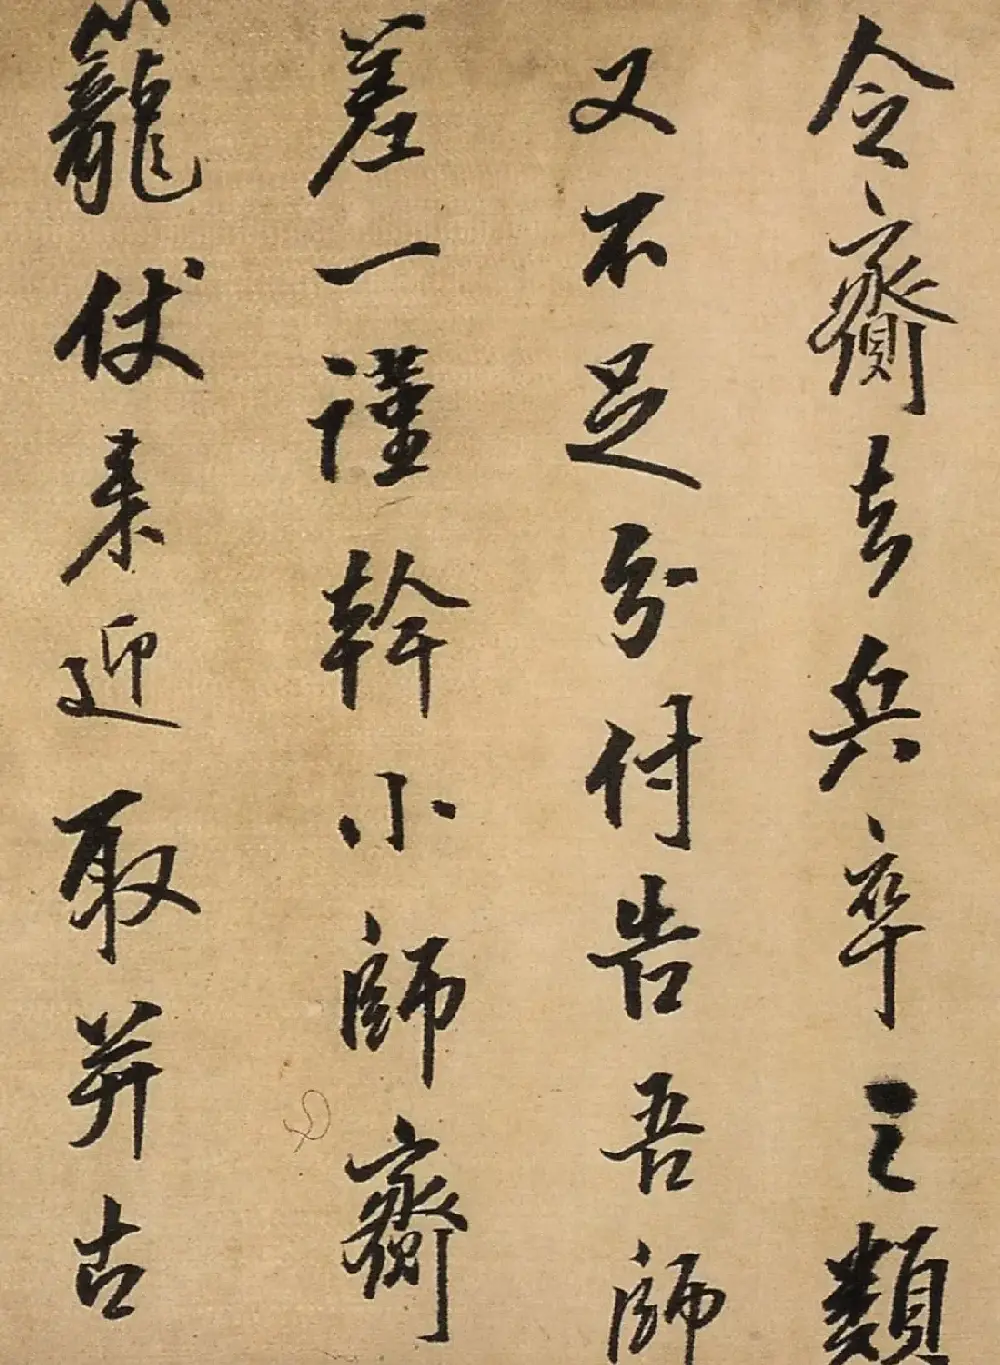 令齎去兵卒之類
又不足分付告吾師
差一謹幹小師齎
籠仗來迎取并古